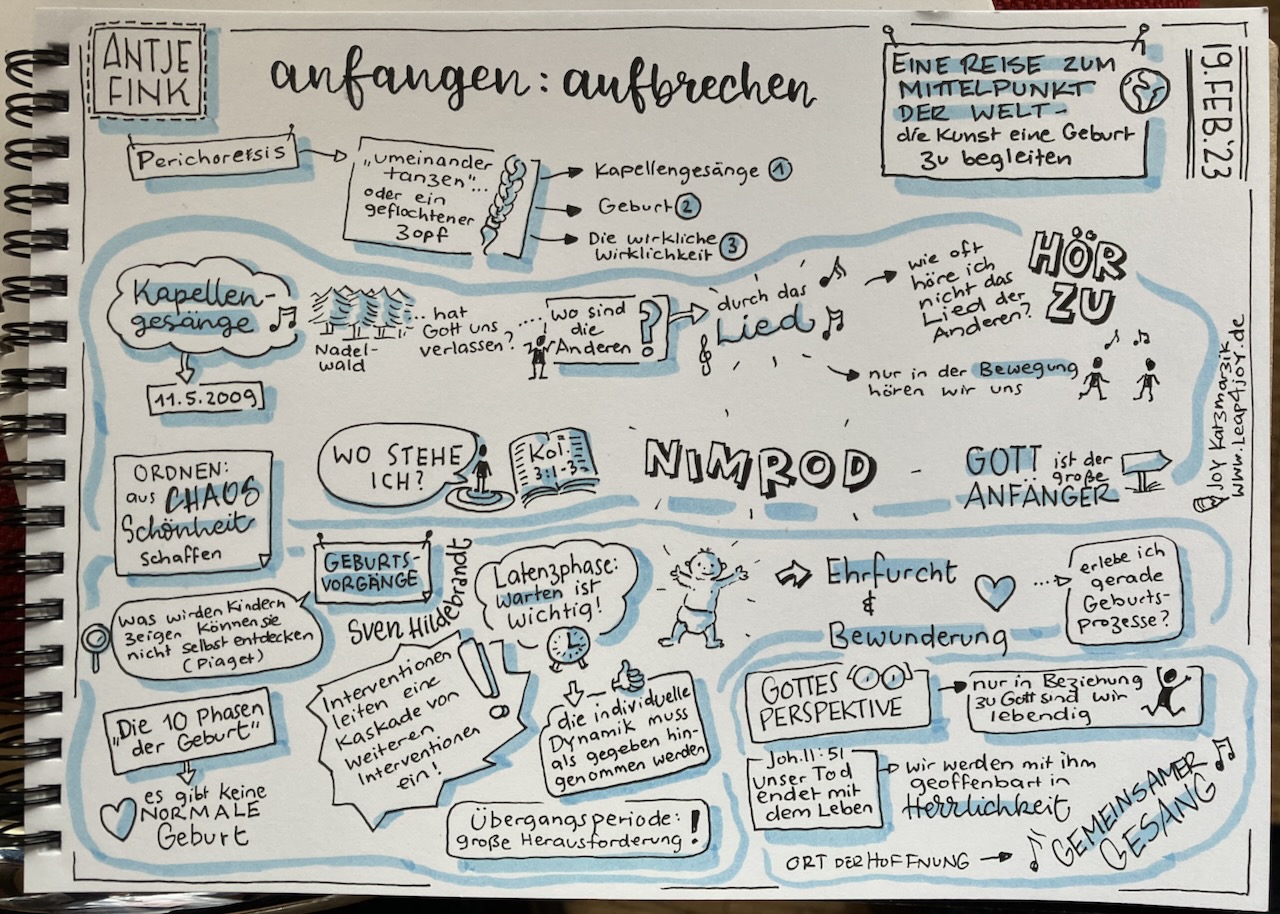 ANTJE
FINK
anfangen: aufbrechen
EINE REISE ZUM
MITTELPUNKT
DER WELT -
die Kunst eine Geburt
zu begleiten
19. FEB.'23
Perichoresis
„umeinander
tanzen"...
oder ein
geflochtener
Zopf
Kapellengesänge 1
Geburt 2
Die wirkliche
Wirklichkeit 3
Kapellen-
gesänge
11.5.2009
Nadel-
wald
... hat
Gott uns
verlassen?
.... wo sind
die
Anderen ?
durch das
Lied
wie oft
höre ich
nicht das
Lied der
Anderen?
HÖR
ZU
nur in der Bewegung
hören wir uns
Joy Katzmarzik
www.Leap4joy.de
ORDNEN:
aus CHAOS
Schönheit
schaffen
WO STEHE
ICH?
Kol.
3:1-3
NIMROD
GOTT ist der
große
ANFÄNGER
GEBURTS-
VORGÄNGE
Sven Hildebrandt
was wir den Kindern
zeigen können sie
nicht selbst entdecken
(Piaget)
„Die 10 Phasen
der Geburt"
es gibt keine
NORMALE
Geburt
Interventionen
leiten eine
Kaskade von
weiteren
Interventionen
ein!
Latenzphase:
warten ist
wichtig!
die individuelle
Dynamik muss
als gegeben hin-
genommen werden
Übergangsperiode:
große Herausforderung!
Ehrfurcht
&
Bewunderung
erlebe ich
gerade
Geburts-
prozesse?
GOTTES
PERSPEKTIVE
nur in Beziehung
zu Gott sind wir
lebendig
Joh. 11:51
unser Tod
endet mit
dem Leben
wir werden mit ihm
geoffenbart in
Herrlichkeit
ORT DER HOFFNUNG
GEMEINSAMER
GESANG